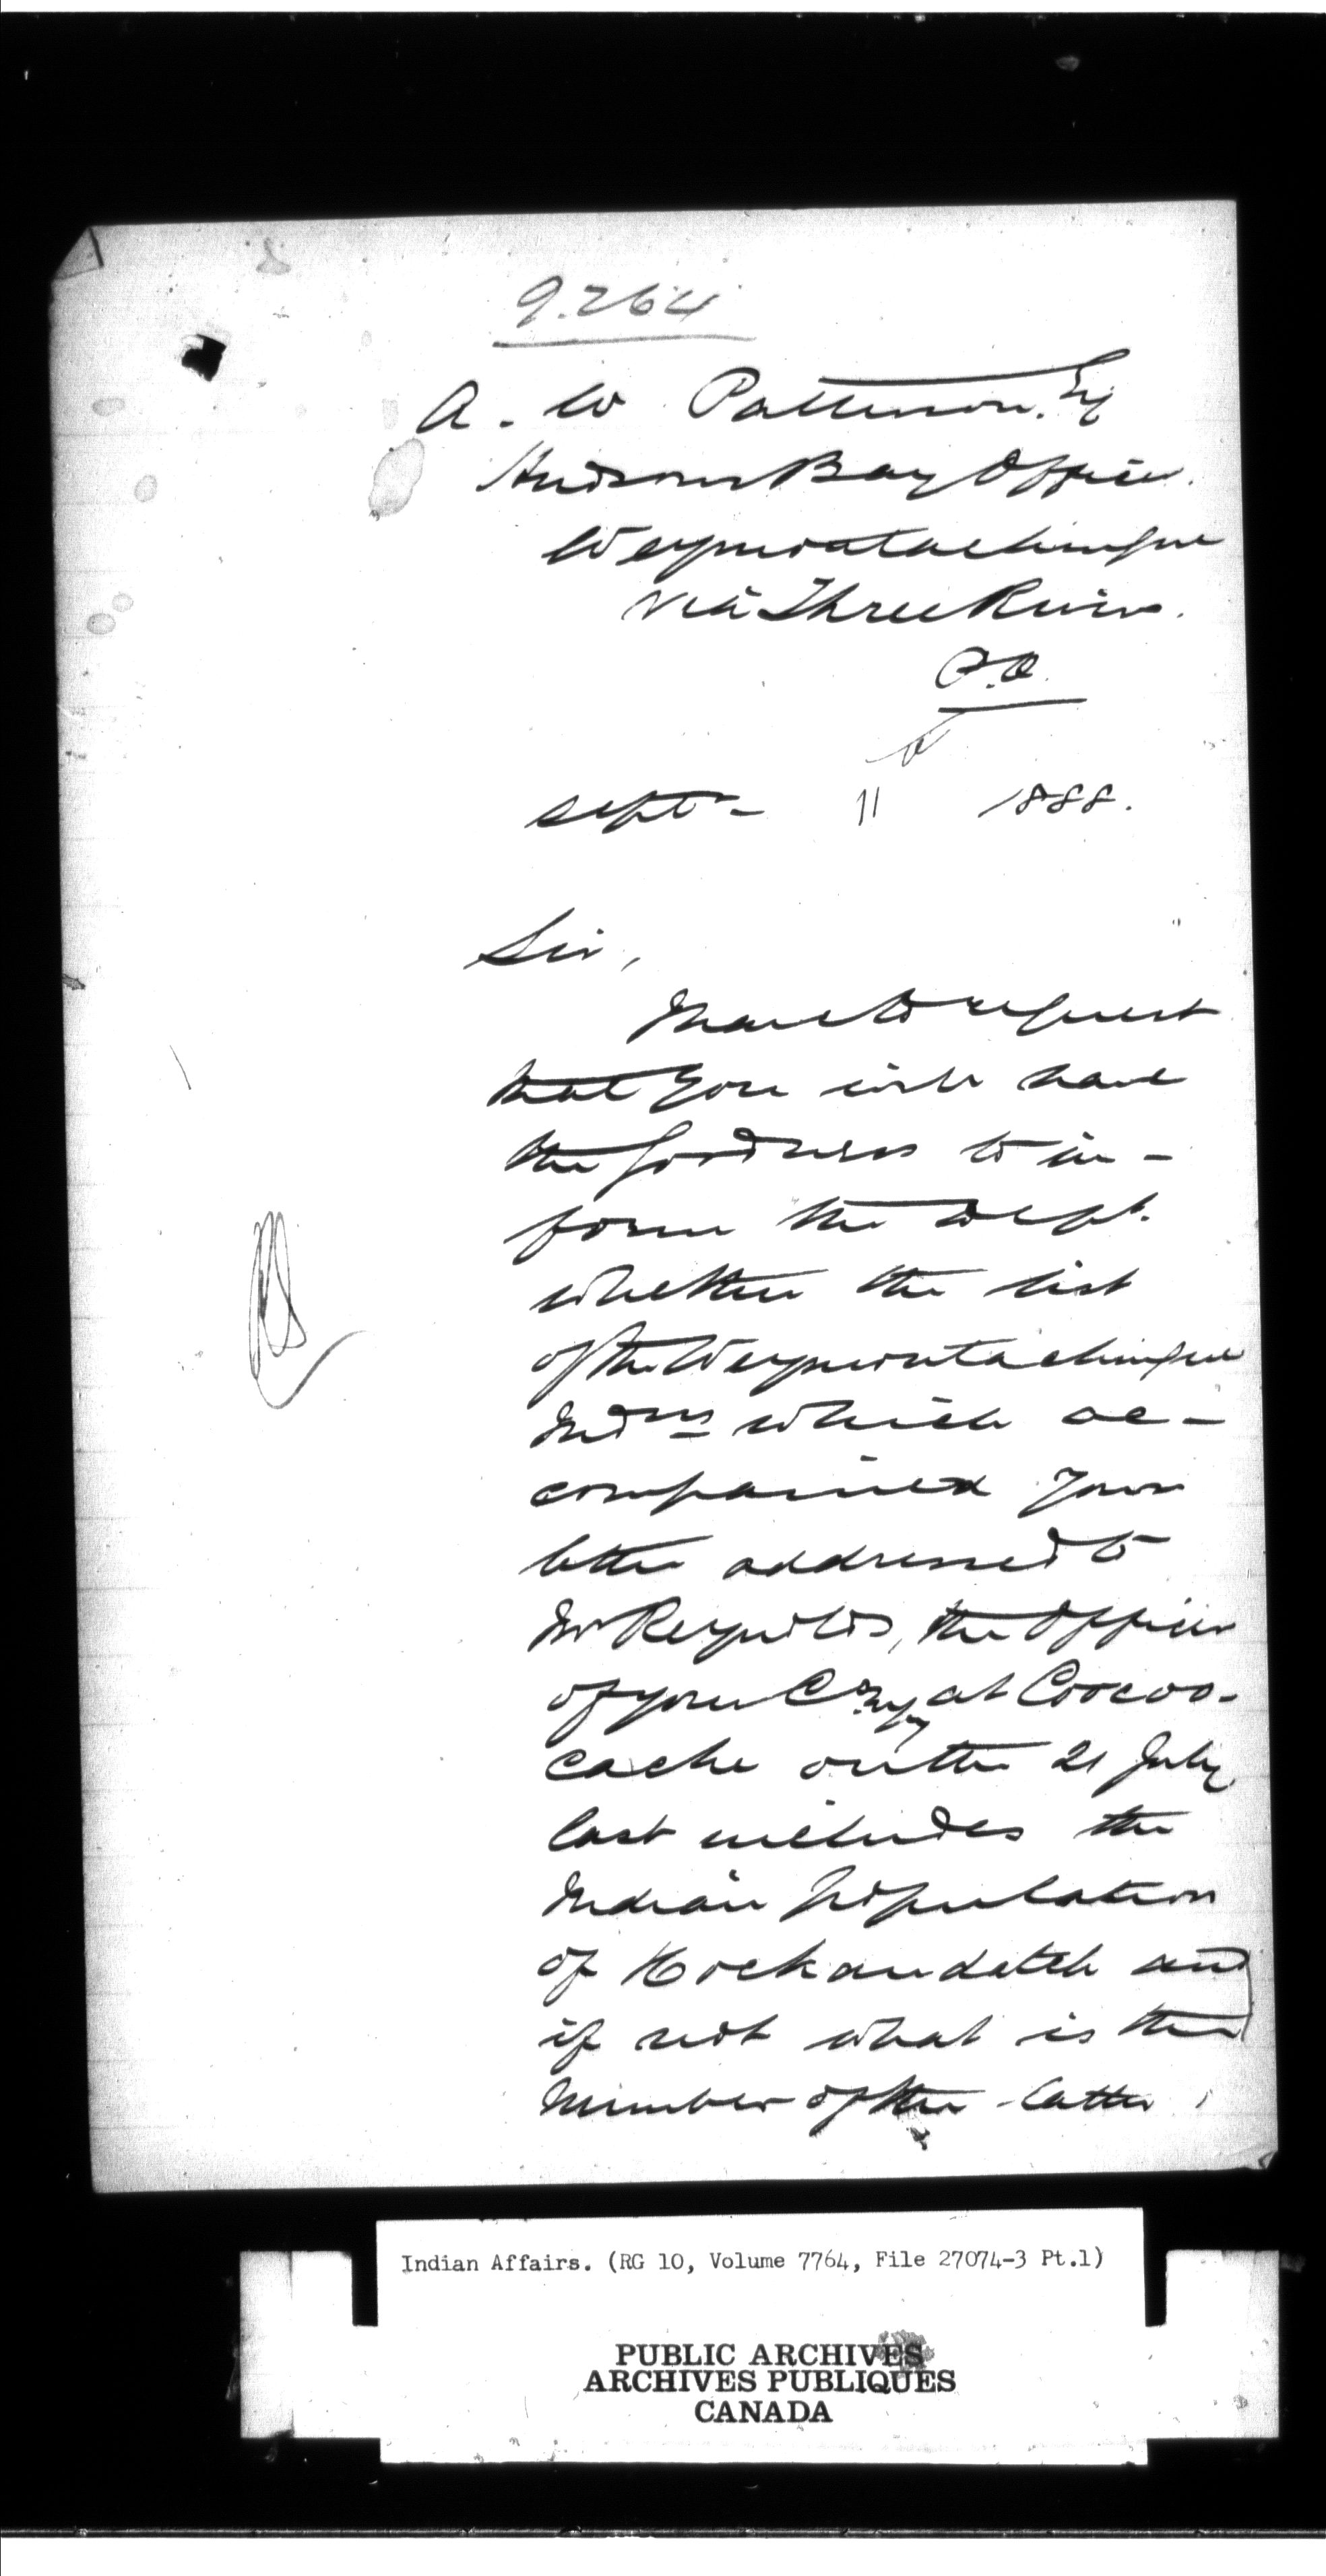 9.264
A. W. Patterson. Esq
Hudson Bay Officer.
Weymontachingue
via Three Rivers.
P.Q.
Septr 11 1888.
Sir,
I have to request
that you will have
the goodness to in-
form the Dept.
whether the list
of the Weymontachingue
Indns which ac-
companied your
letter addressed to
Mr Reynolds, the Officer
of your Coy at Coocoo-
cache on the 21 July
last includes the
Indian population
of Kickandatch and
if not what is the
number of the latter,
Indian Affairs. (RG 10, Volume 7764, File 27074-3 Pt.1)
PUBLIC ARCHIVES
ARCHIVES PUBLIQUES
CANADA